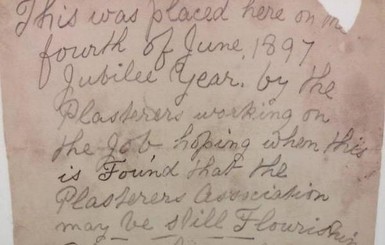 This was placed here on
fourth of June, 1897
Jubilee Year. by the
Plasterers working on
the Job hoping when this
is Found that the
Plasterers Association
may be still Flourishin